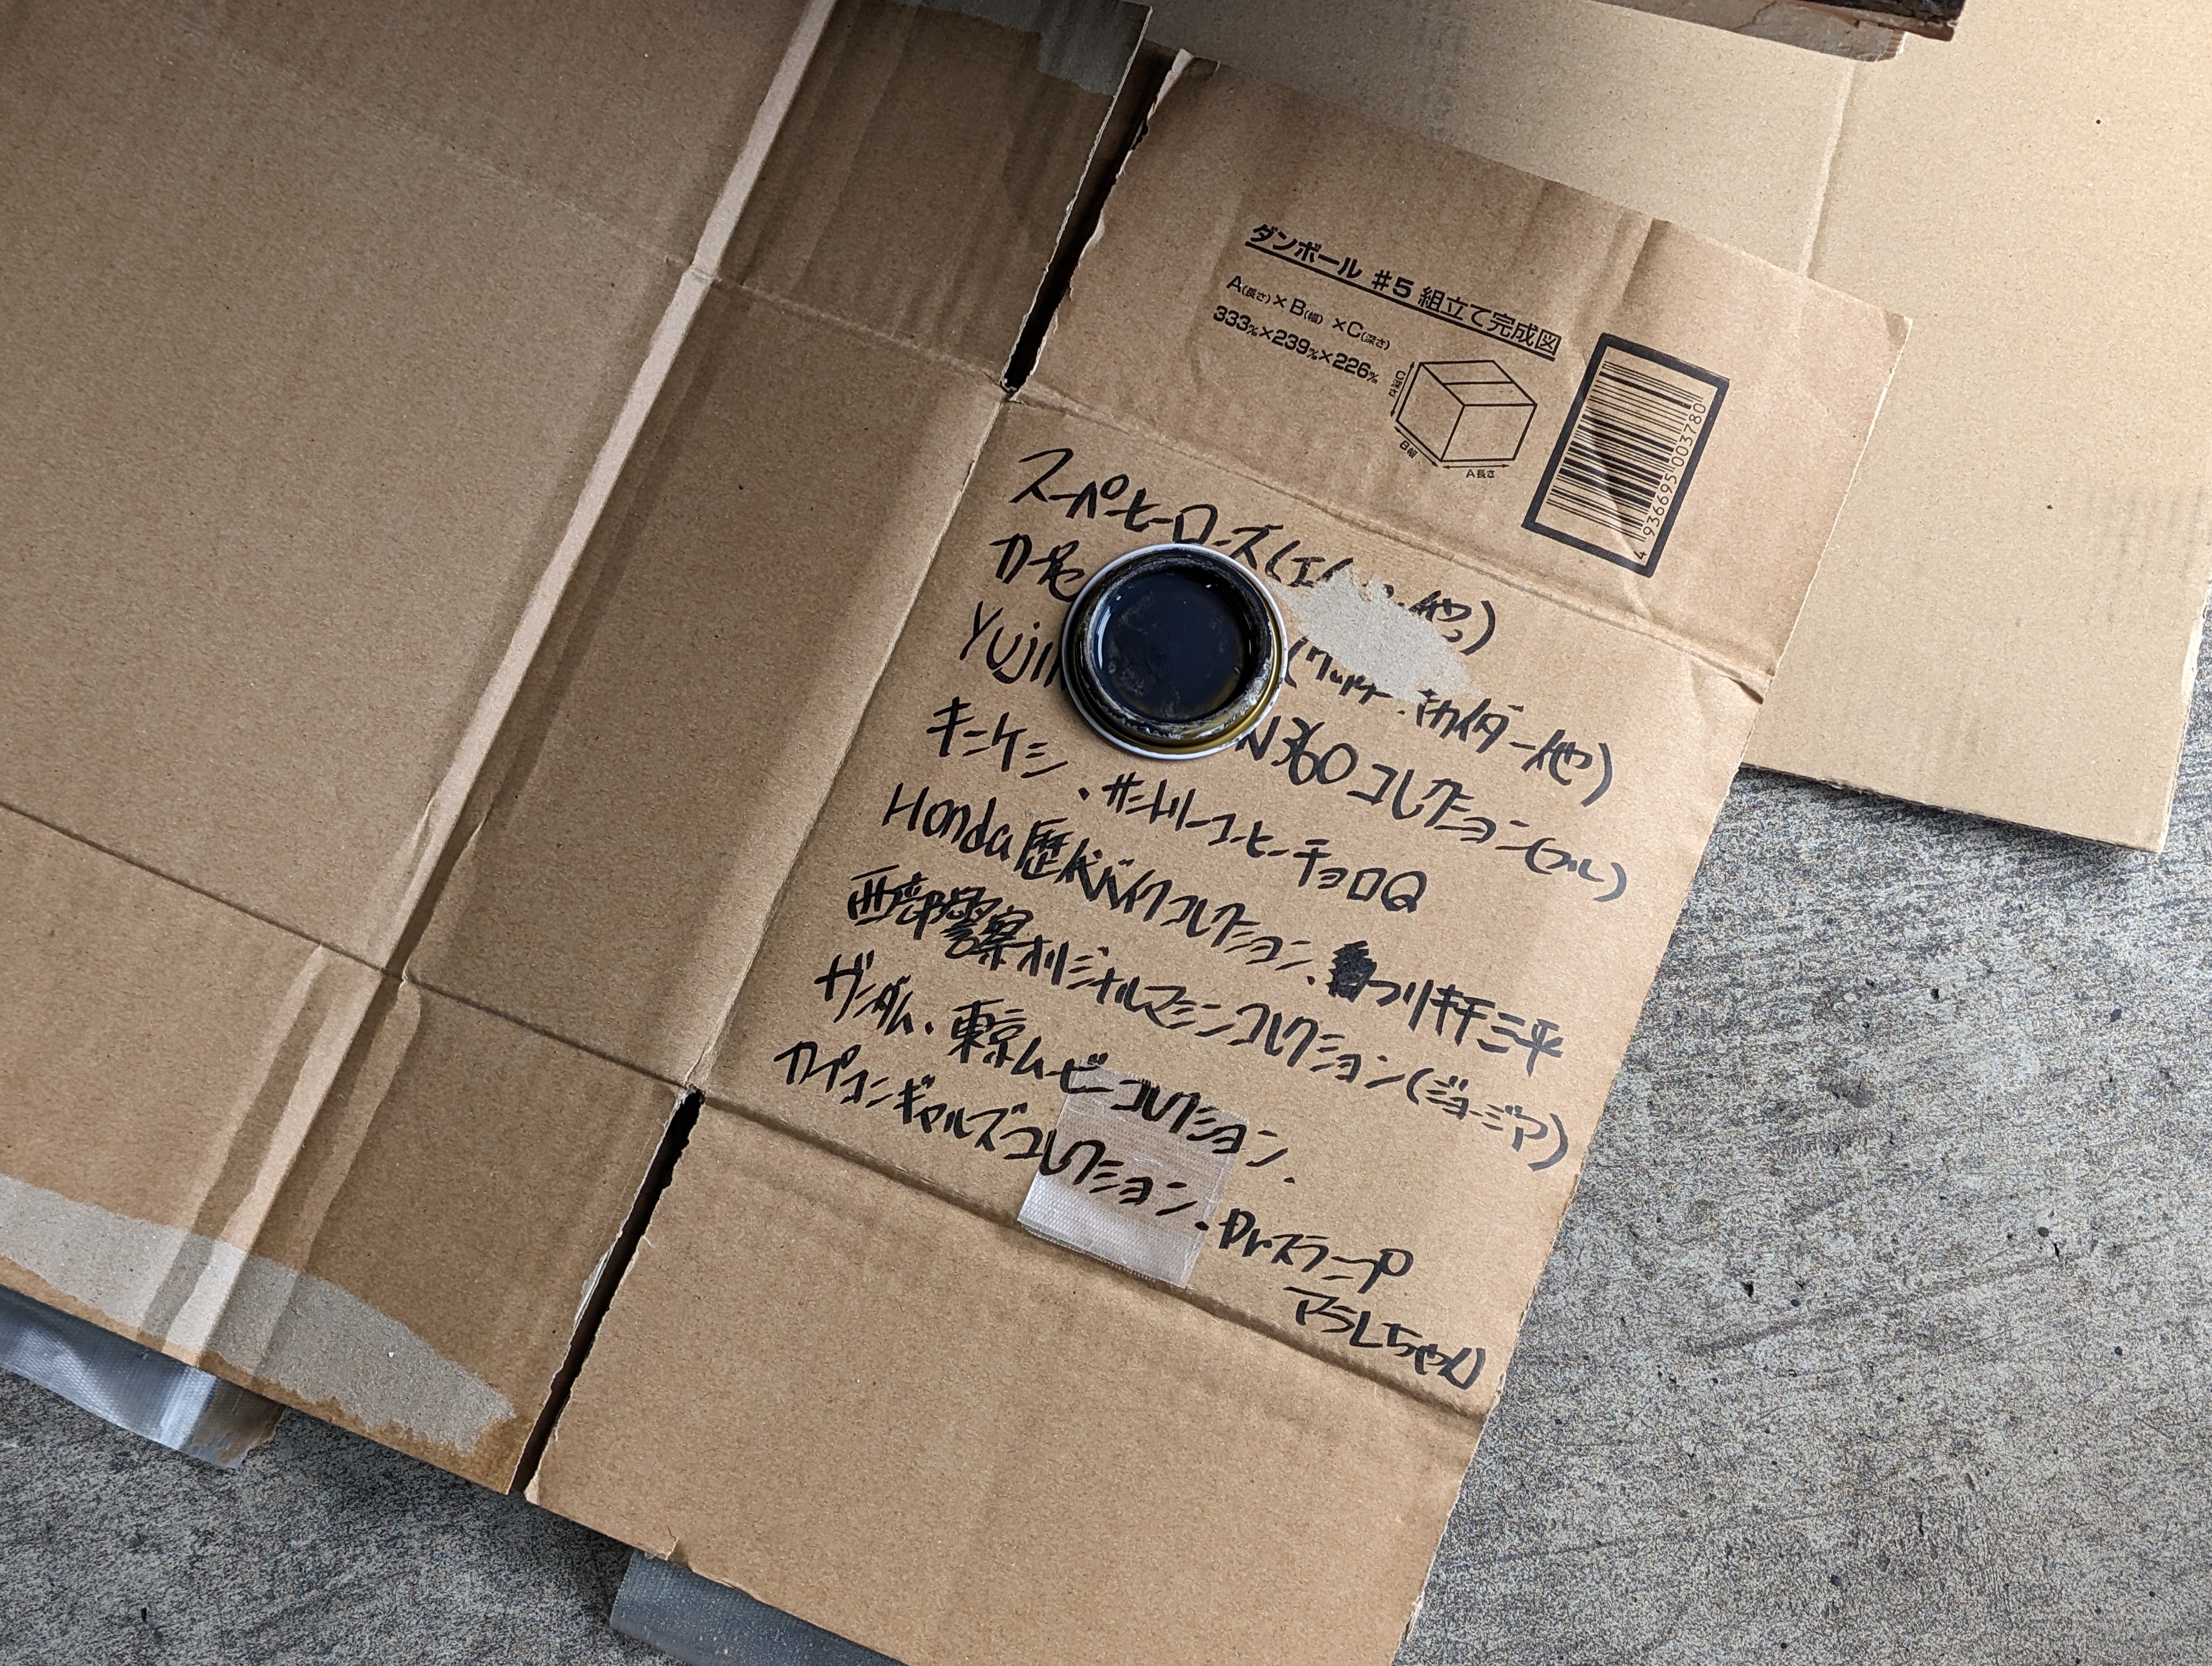 ダンボール #5 組立て完成図
A(長さ)×B(幅)×C(深さ)
333%×239%×226%
C深さ
B幅
A長さ
4 936695 003780
スーパーヒーローズ(エ 他)
カー
Yuji キカイダー他)
N360コレクション(フル)
キン消シ、サントリーコーヒーチョロQ
Honda歴代バイクコレクション、つりキチ三平
西部警察オリジナルマシンコレクション(ジョージア)
ガンダム、東京ムービーコレクション、
カプコンギャルズコレクション、Drスランプ
アラレちゃん